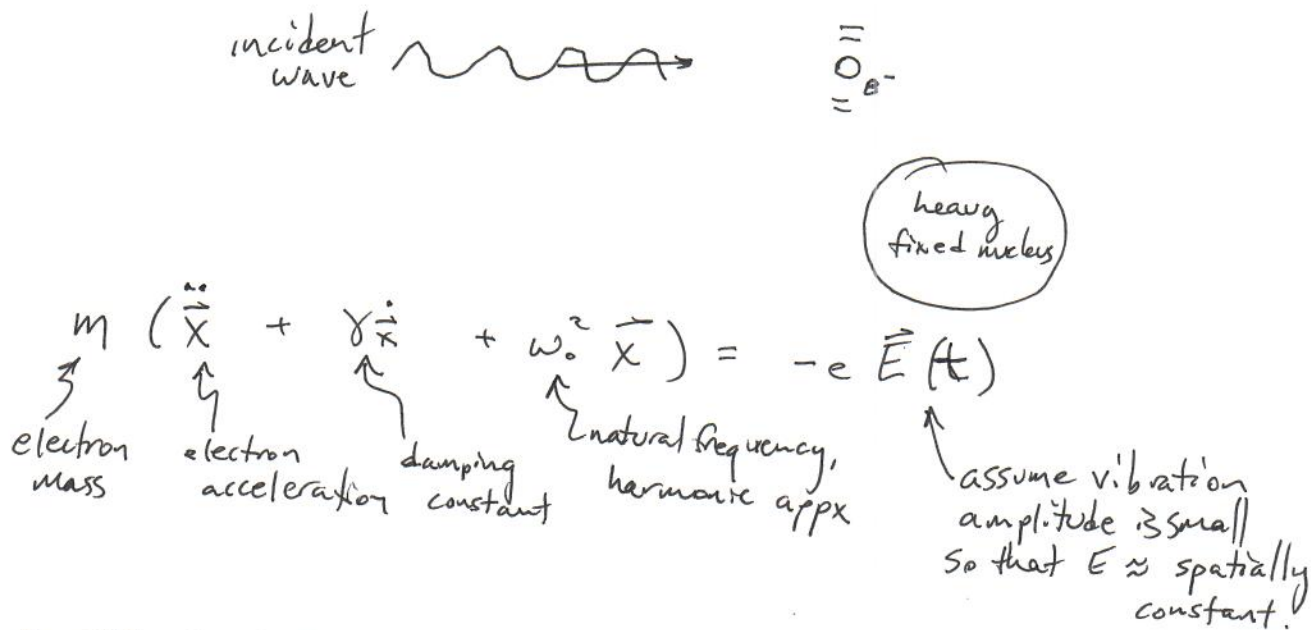 incident
wave
e⁻
heavy
fixed nucleus
m ( \ddot{\vec{x}} + γ \dot{\vec{x}} + ω₀² \vec{x} ) = -e \vec{E}(t)
electron
mass
electron
acceleration
damping
constant
natural frequency,
harmonic appx
assume vibration
amplitude is small
so that E ≈ spatially
constant.